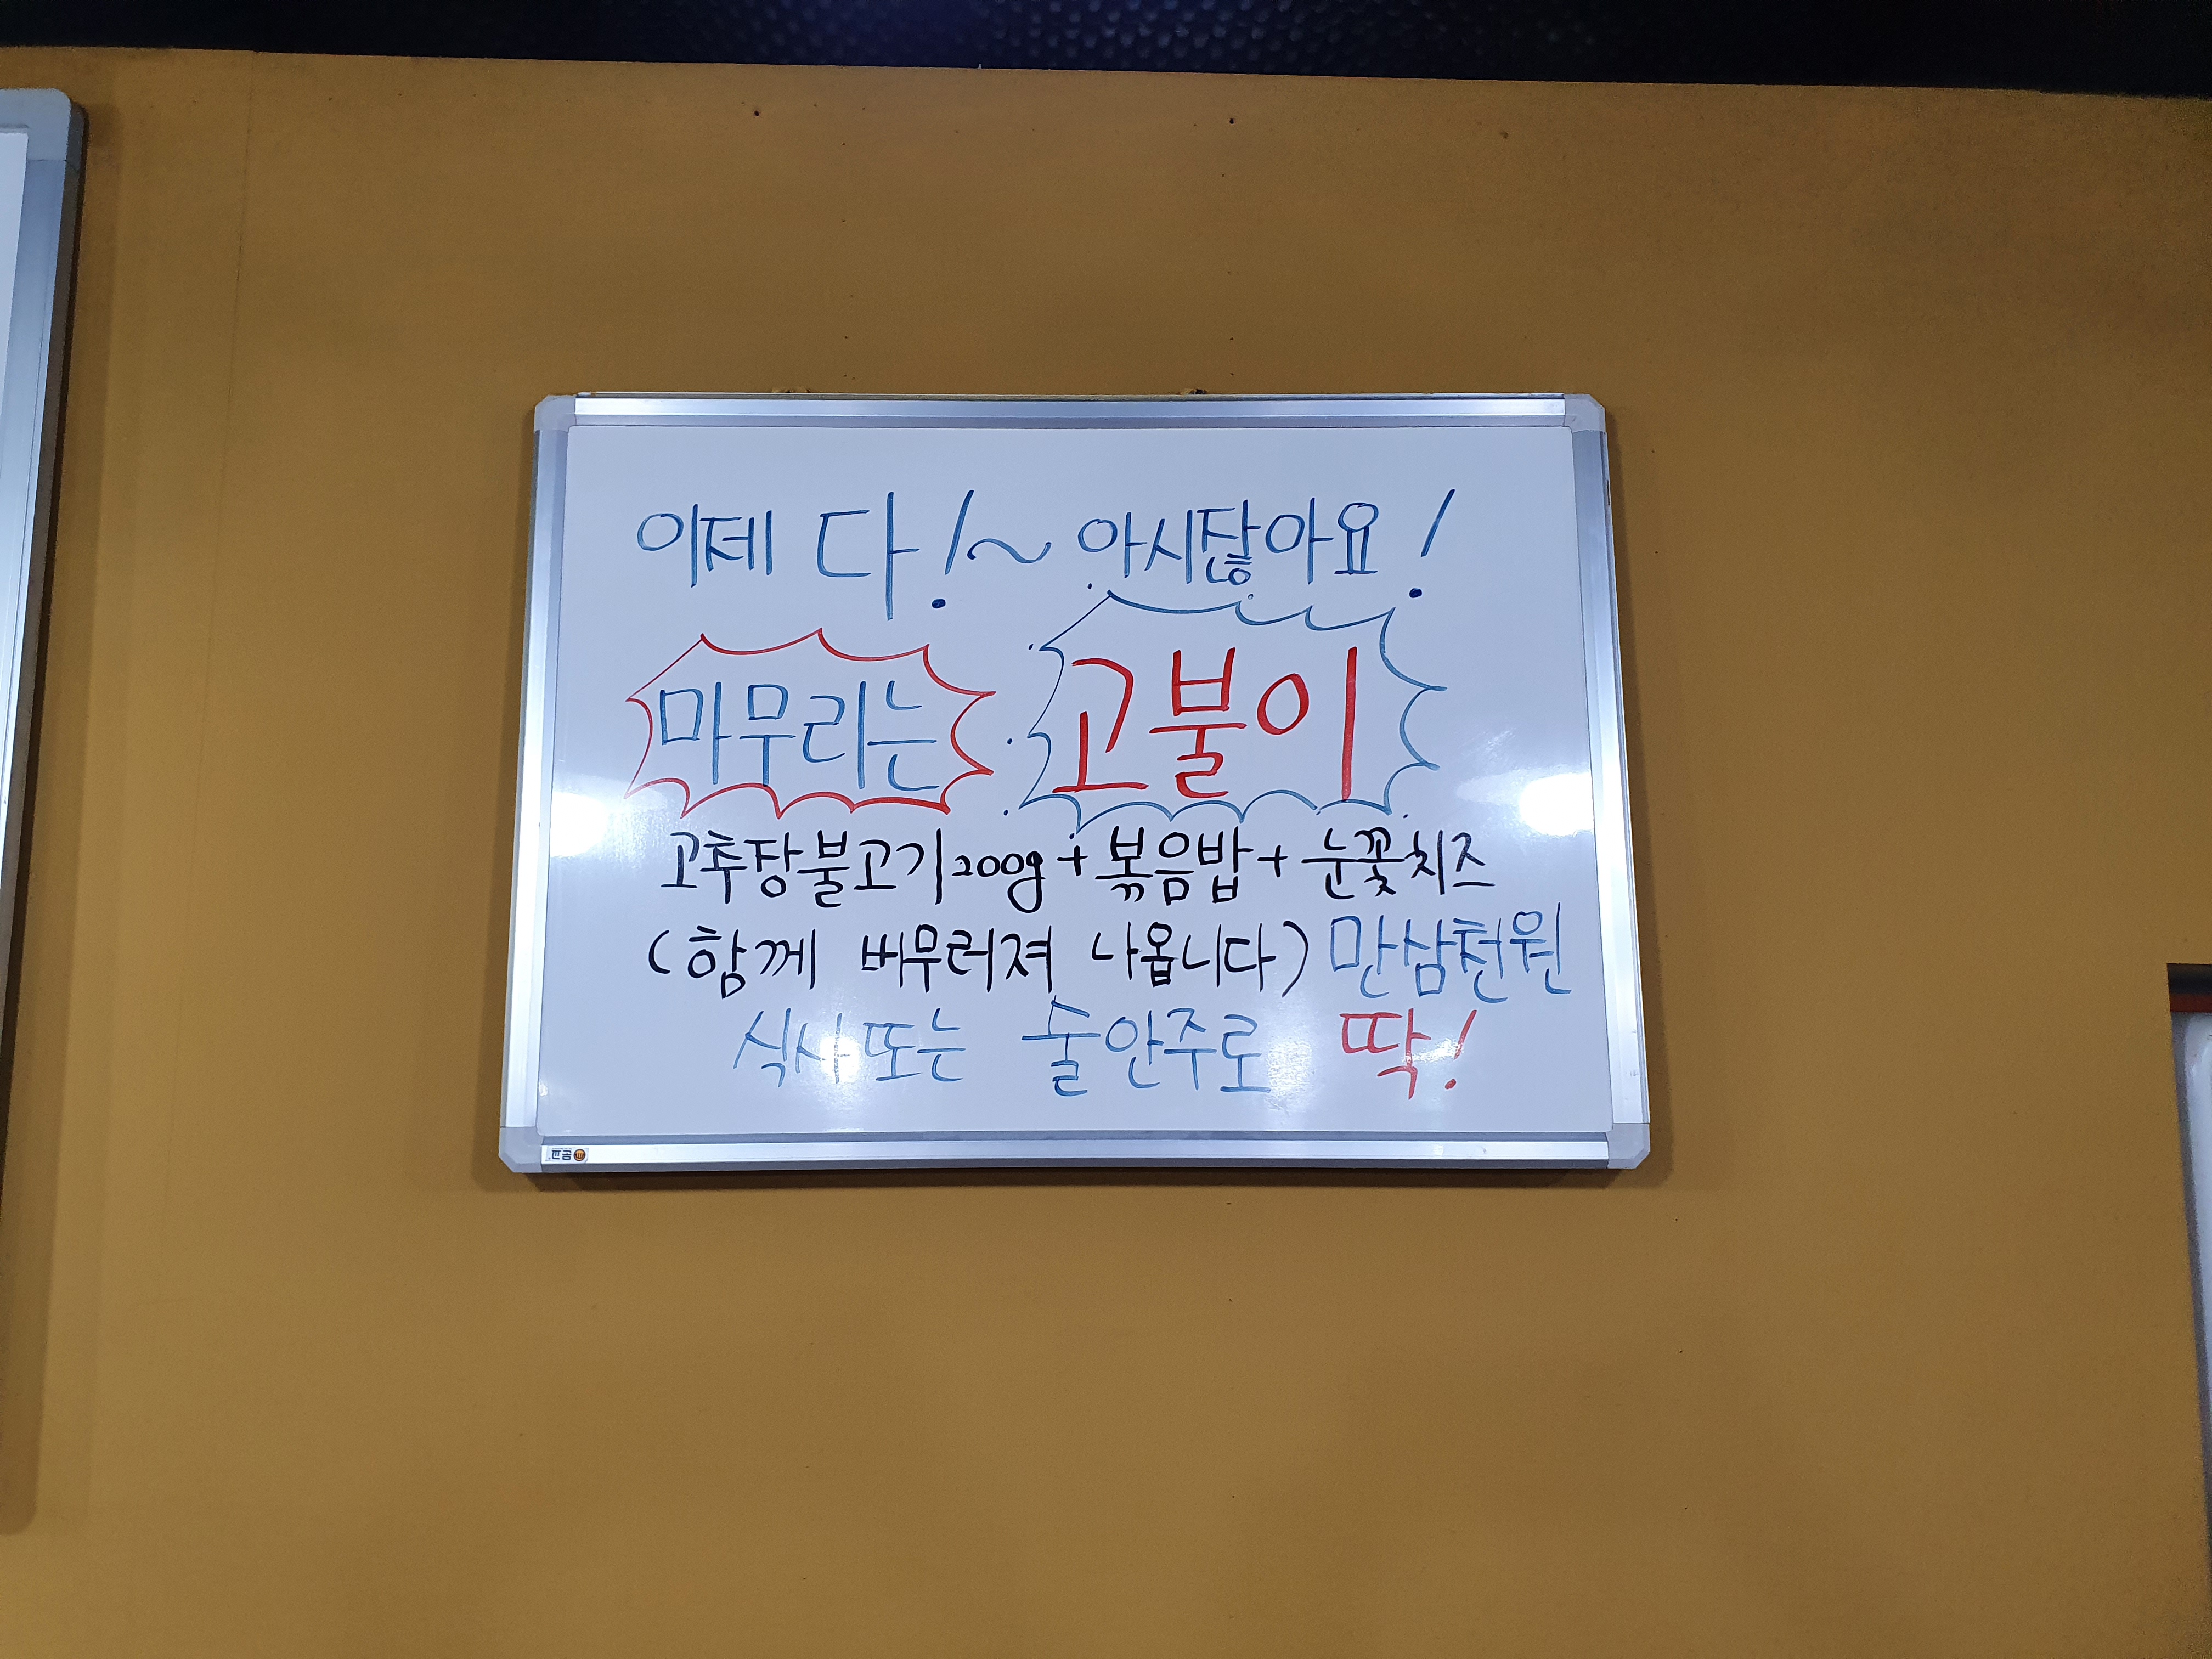 이제 다!~ 아시잖아요!
마무리는 고불이
고추장불고기200g+볶음밥+눈꽃치즈
(함께 버무러져 나옵니다) 만삼천원
식사또는 술안주로 딱!